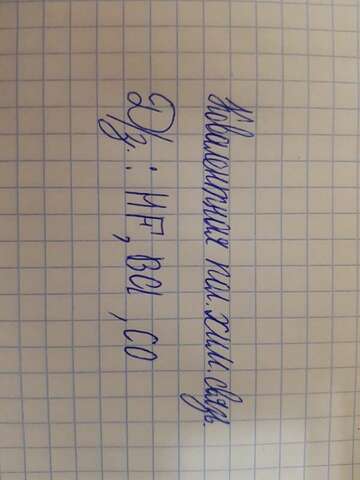 Ковалентная пол. хим. связь.
D/з.: HF, BCl, CO